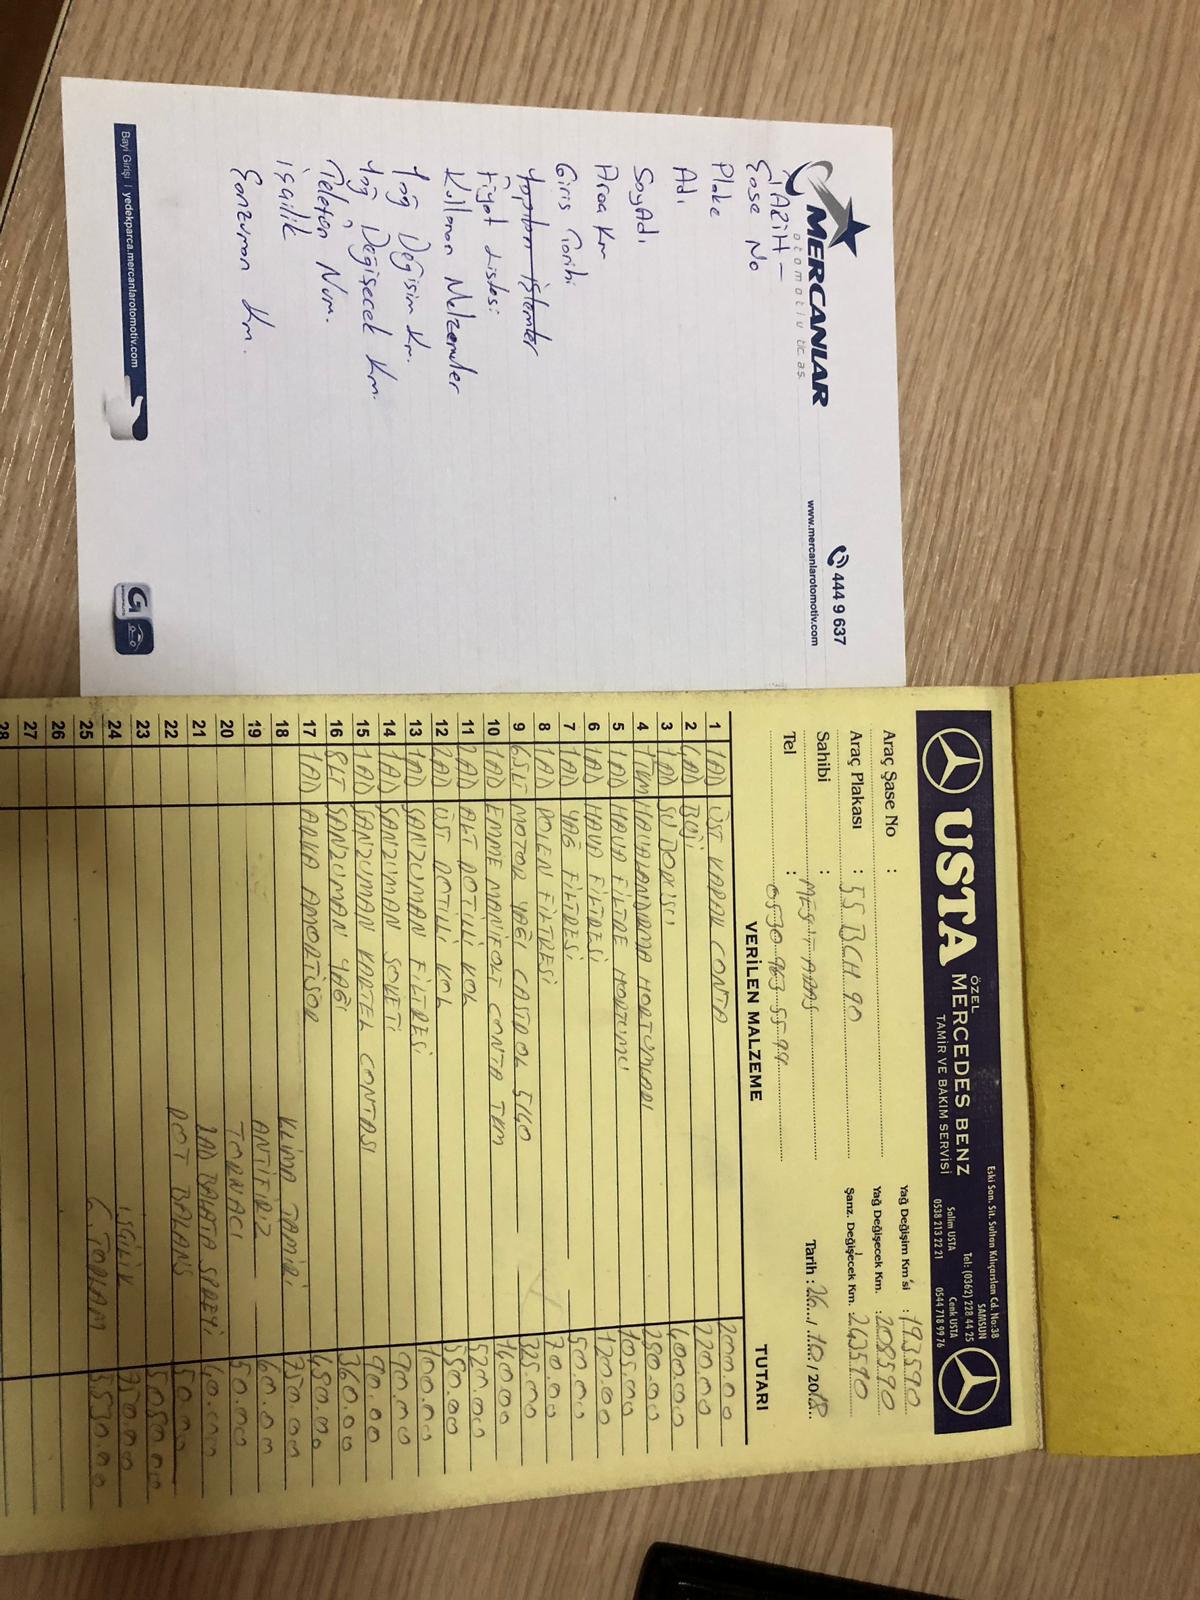 MERCANLAR
otomotiv tic. a.ş.
444 9 637
www.mercanlarotomotiv.com
TARİH -
Şase No
Plaka
Adı
SoyAdı
Araa Km
Giriş Tarihi
Yapılan İşlemler
Fiyat Listesi
Kullanan Malzemeler
Yağ Değişim Km.
Yağ Değişecek Km.
Telefon Num.
işçilik
Şanzuman Km.
Bayi Girişi | yedekparca.mercanlarotomotiv.com
G
USTA
ÖZEL
MERCEDES BENZ
TAMİR VE BAKIM SERVİSİ
Eski San. Sit. Sultan Kılıçarslan Cd. No:38
SAMSUN
Tel: (0362) 228 44 25
Salim USTA Cenk USTA
0538 213 22 21 0544 718 99 76
Araç Şase No :
Araç Plakası : 55 BCH 90
Sahibi : MESUT ARAS
Tel : 0530 963 55 99
Yağ Değişim Km'si : 193590
Yağ Değişecek Km. : 208590
Şanz. Değişecek Km. : 243590
Tarih : 26 / 10 / 2018
VERİLEN MALZEME TUTARI
1 1AD ÜST KAPAK CONTA 200.00
2 4AD BUJİ 220.00
3 1AD SU BORUSU 400.00
4 1TKM HAVALANDIRMA HORTUMLARI 280.00
5 1AD HAVA FİLTRE HORTUMU 105.00
6 1AD HAVA FİLTRESİ 120.00
7 1AD YAĞ FİLTRESİ 50.00
8 1AD POLEN FİLTRESİ 70.00
9 6.5LT MOTOR YAĞI CASTROL 5/40 325.00
10 1AD EMME MANİFOLT CONTA TKM 140.00
11 2AD ALT ROTİLLİ KOL 520.00
12 2AD ÜST ROTİLLİ KOL 550.00
13 1AD ŞANZUMAN FİLTRESİ 100.00
14 1AD ŞANZUMAN SOKETİ 90.00
15 1AD ŞANZUMAN KARTEL CONTASI 90.00
16 8LT ŞANZUMAN YAĞI 360.00
17 1AD ARKA AMORTİSÖR 450.00
18 KLİMA TAMİRİ 750.00
19 ANTİFİRİZ 60.00
20 TORNACI 50.00
21 2AD BALATA SPREYİ 40.00
22 ROT BALANS 50.00
23 5080.00
24 İŞÇİLİK 750.00
25 G. TOPLAM 5.830.00
26
27
28